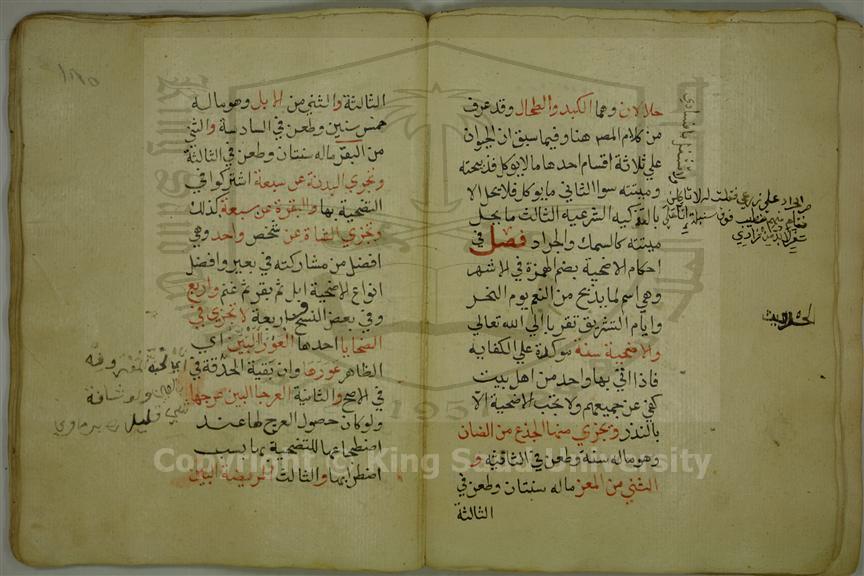 حلالان وهما الكبد والطحال وقد عرف
من كلام المصـ هنا وفيما سبق ان الحيوان
علي ثلاثة اقسام احدها مالايوكل فذبيحته
وميتته سوا الثاني مايوكل فلايحل الا
بالتذكيه الشرعية الثالث مايحل
ميتته كالسمك والجراد فصل في
احكام الاضحية بضم الهمزة في الاشهر
وهي اسم لما يذبح من النعم يوم النحر
وايام التشريق تقربا الي الله تعالي
والاضحية سنة موكدة علي الكفايه
فاذا اتي بها واحد من اهل بيت
كفي عن جميعهم ولا تجب الاضحية الا
بالنذر ويجزي منها الجذع من الضان
وهو ماله سنة وطعن في الثانيه و
الثني من المعز ماله سنتان وطعن في
الثالثة
الثالثة والثني من الابل وهو ماله
خمس سنين وطعن في السادسة والثني
من البقر ماله سنتان وطعن في الثالثة
وتجزي البدنة عن سبعة اشتركوا في
التضحية بها والبقرة عن سبعة كذلك
وتجزي الشاة عن شخص واحد وهي
افضل من مشاركته في بعير وافضل
انواع الاضحية ابل ثم بقر ثم غنم واربع
وفي بعض النسخ واربعة لا تجزي في
الضحايا احدها العورا البين اي
الظاهر عورها وان بقية الحدقة في
في الاصح والثانية العرجا البين عرجها
ولو كان حصول العرج لها عند
اضطجاعها للتضحية بها بسبب
اضطرابها والثالث المريضة البين
Copyright © King Saud University
1957